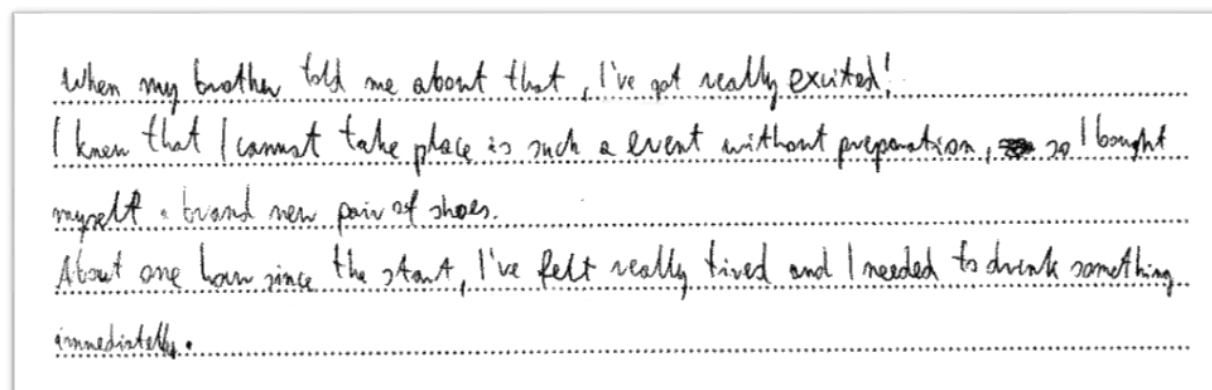 When my brother told me about that, I've got really excited!
I knew that I cannot take place is such a event without preparation, so I bought
myself a brand new pair of shoes.
About one hour since the start, I've felt really tired and I needed to drink something
immediatelly.